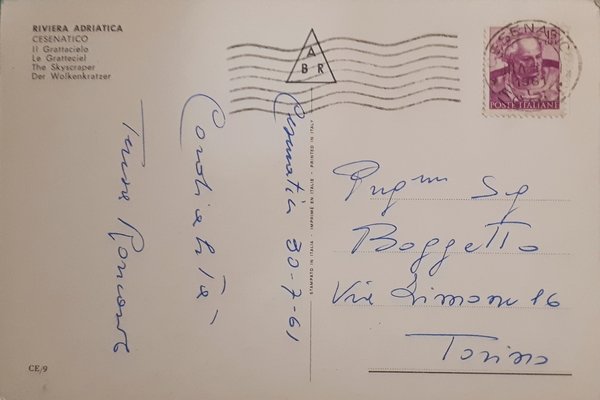 RIVIERA ADRIATICA
CESENATICO
Il Grattacielo
Le Gratteciel
The Skyscraper
Der Wolkenkratzer
A
B R
CESENATICO
POSTE ITALIANE
Cesenatico 30-7-61
Cordialità
STAMPATO IN ITALIA - IMPRIMÉ EN ITALIE - PRINTED IN ITALY
Sig
Boggetto
Via Limone 16
Torino
CE/9